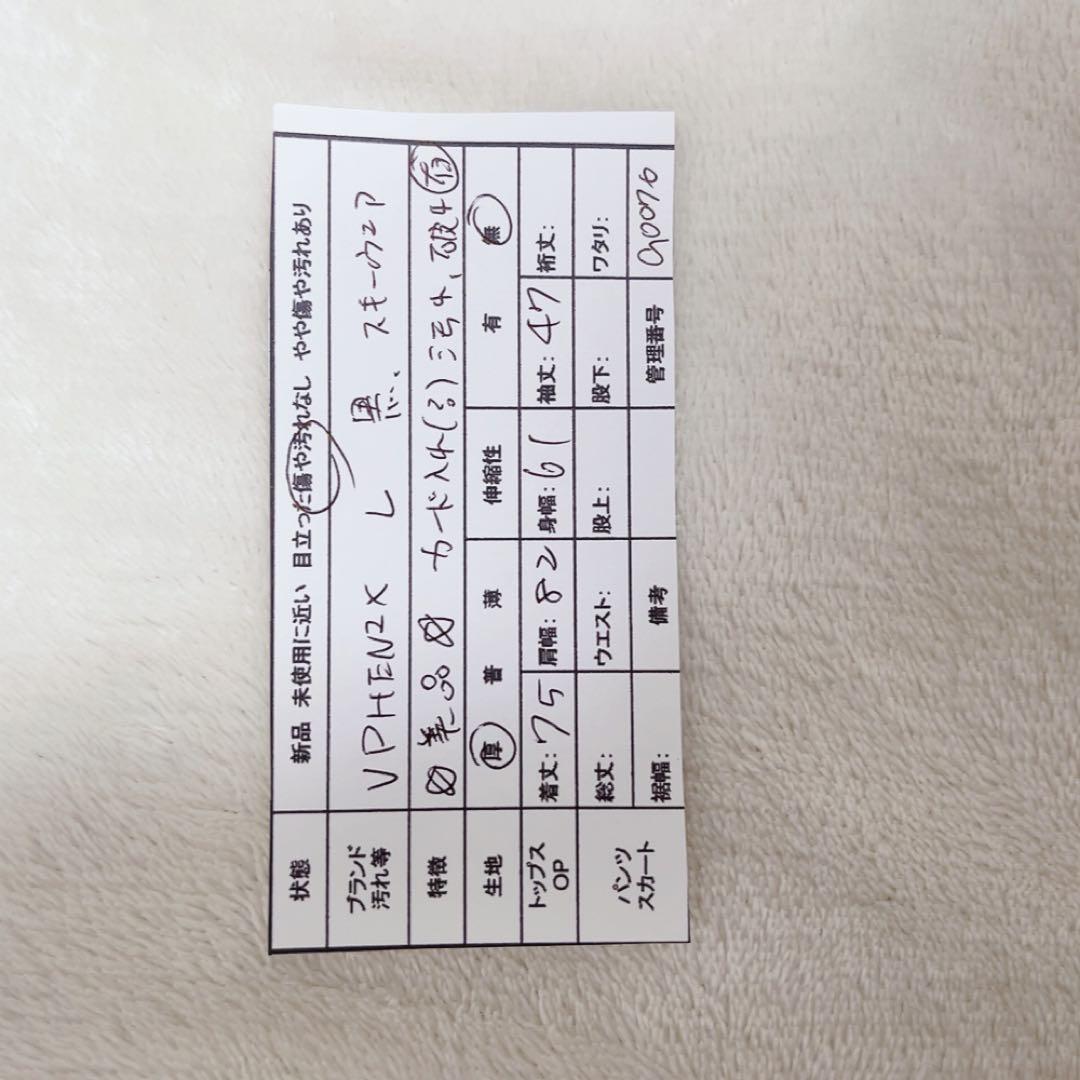 状態 新品 未使用に近い 目立った傷や汚れなし やや傷や汚れあり
ブランド 汚れ等 VPHENIX L 黒、スキーウエア
特徴 美品 カード入れ(る)汚れ、破れ有
生地 厚 普 薄 伸縮性 有 無
トップス OP 着丈:75 肩幅:82 身幅:61 袖丈:47 裄丈:
パンツ スカート 総丈: ウエスト: 股上: 股下: ワタリ:
裾幅: 備考 管理番号 a0076